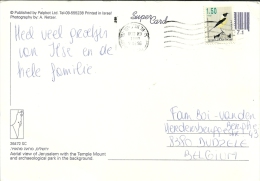 © Published by Palphot Ltd. Tel-09-555238 Printed in Israel
Photography by: A. Nelzer
Super Card
1.50
Heel veel groetjes
van Ilse en de
hele familie
Fam Boi-van den
Berghe
8380 DUDZELE
BELGIUM
36472 SC.
Aerial view of Jerusalem with the Temple Mount
and archaeological park in the background.